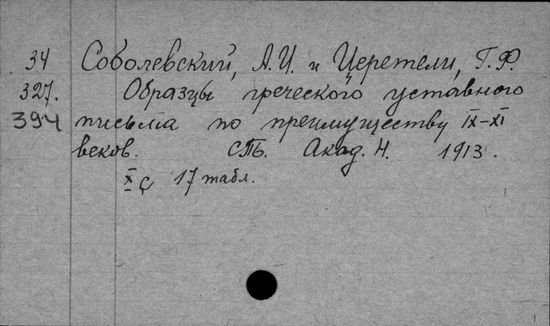 34 Соболевский, А.И. и Церетели, Г.Ф.
327. Образцы греческого уставного
394 письма по преимуществу IX-XI
веков. СПб. Акад. Н. 1913.
X с, 17 табл.